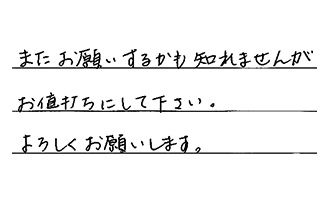 またお願いするかも知れませんが
お値打ちにして下さい。
よろしくお願いします。